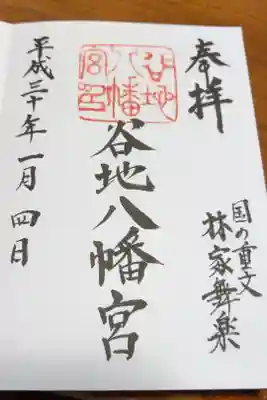 奉拝
国の重文
林家舞楽
谷地八幡宮
谷地八幡宮印
平成三十年一月四日